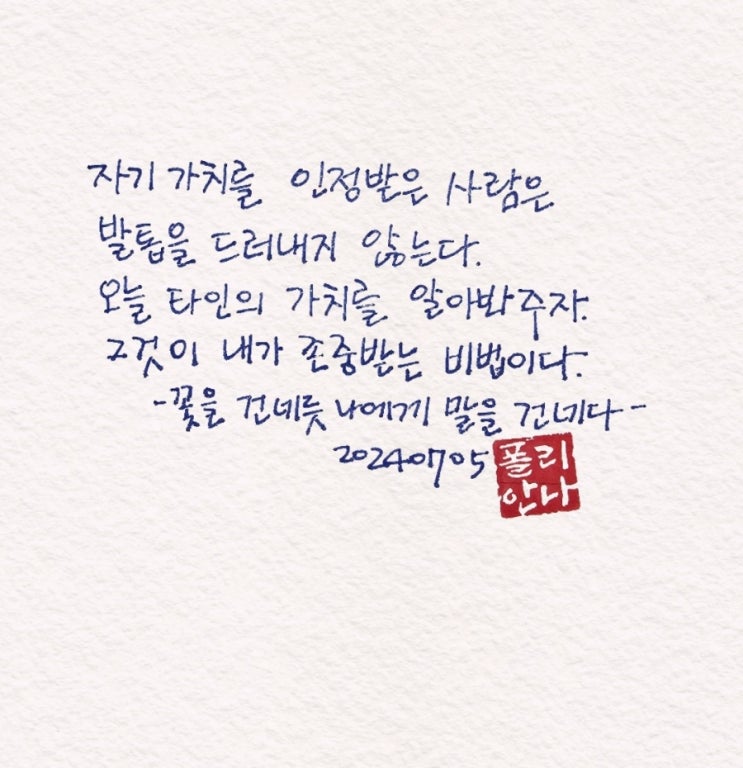 자기 가치를 인정받은 사람은
발톱을 드러내지 않는다.
오늘 타인의 가치를 알아봐주자.
그것이 내가 존중받는 비법이다.
-꽃을 건네듯 나에게 말을 건네다-
20240705
폴리
안나